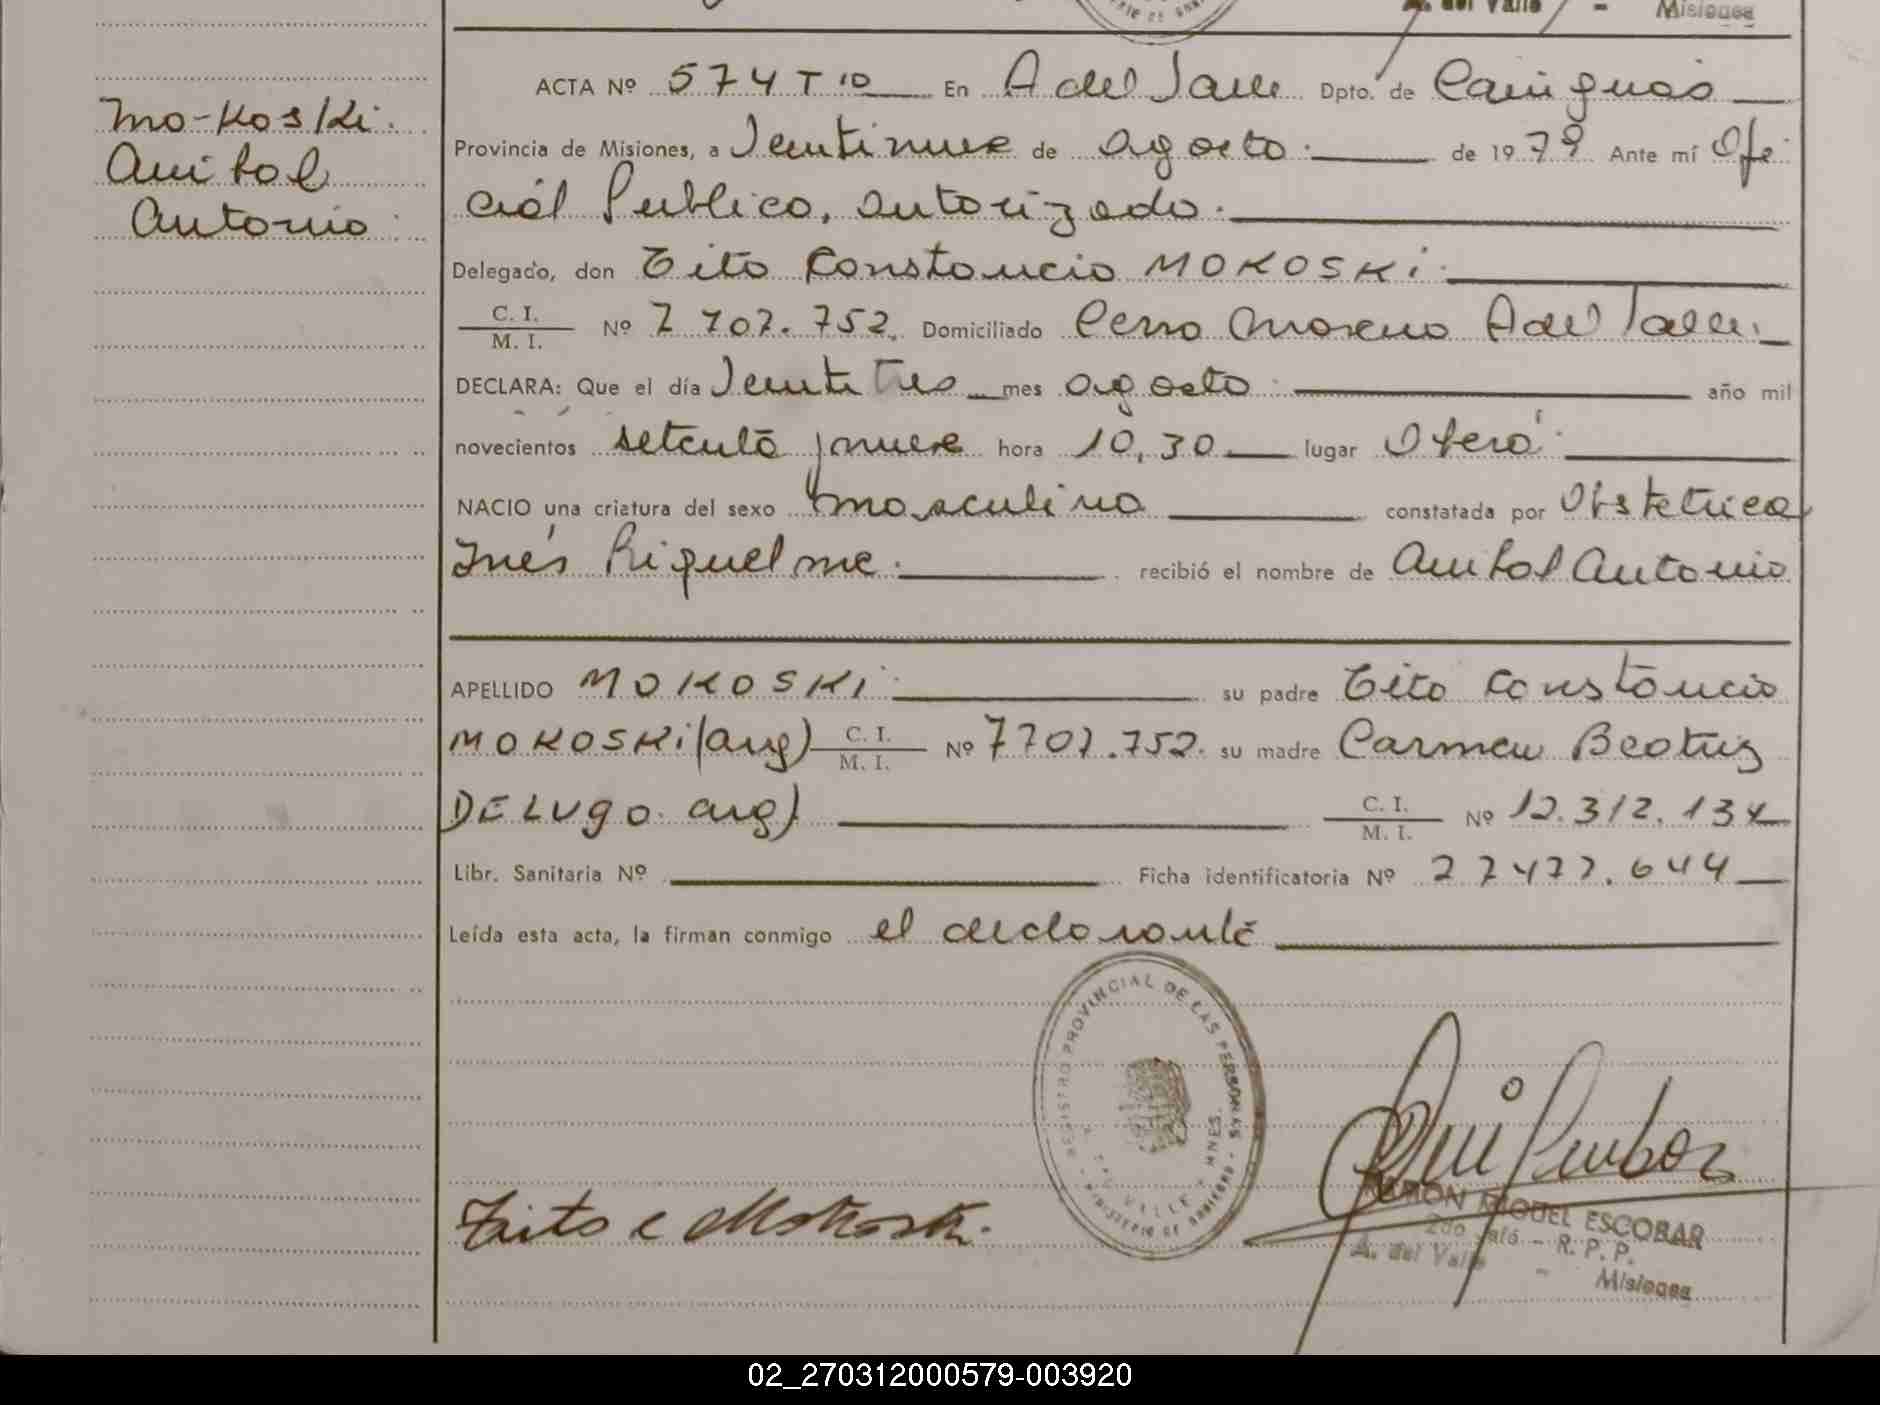 A. del Valle - Misiones
Mo-koski.
Anibal
Antonio
ACTA Nº 574 T IO En A del Valle Dpto. de Cainguás
Provincia de Misiones, a Veintinueve de agosto. de 1979 Ante mí Ofi
ciál Publico, autorizado.
Delegado, don Tito Constancio MOKOSKi.
C. I.
M. I. Nº 7 707.752. Domiciliado Cerro Moreno A del Valle.
DECLARA: Que el día Veinti Tres mes agosto. año mil
novecientos setenta y nueve hora 10,30 lugar Oberá.
NACIO una criatura del sexo masculino constatada por Obstetrica
Inés Riquelme. recibió el nombre de Anibal Antonio
APELLIDO MOKOSKi su padre Tito Constancio
MOKOSKi (arg) C. I.
M. I. Nº 7707.752. su madre Carmen Beatriz
DE LUgO. arg) C. I.
M. I. Nº 12.312.134
Libr. Sanitaria Nº Ficha identificatoria Nº 27477.644
Leída esta acta, la firman conmigo el declarante
REGISTRO PROVINCIAL DE LAS PERSONAS
A. DEL VALLE - MNES.
MINISTERIO DE GOBIERNO
Tito C Mokoski.
RAMON MIGUEL ESCOBAR
2do - R. P. P.
A. del Valle - Misiones
02_270312000579-003920